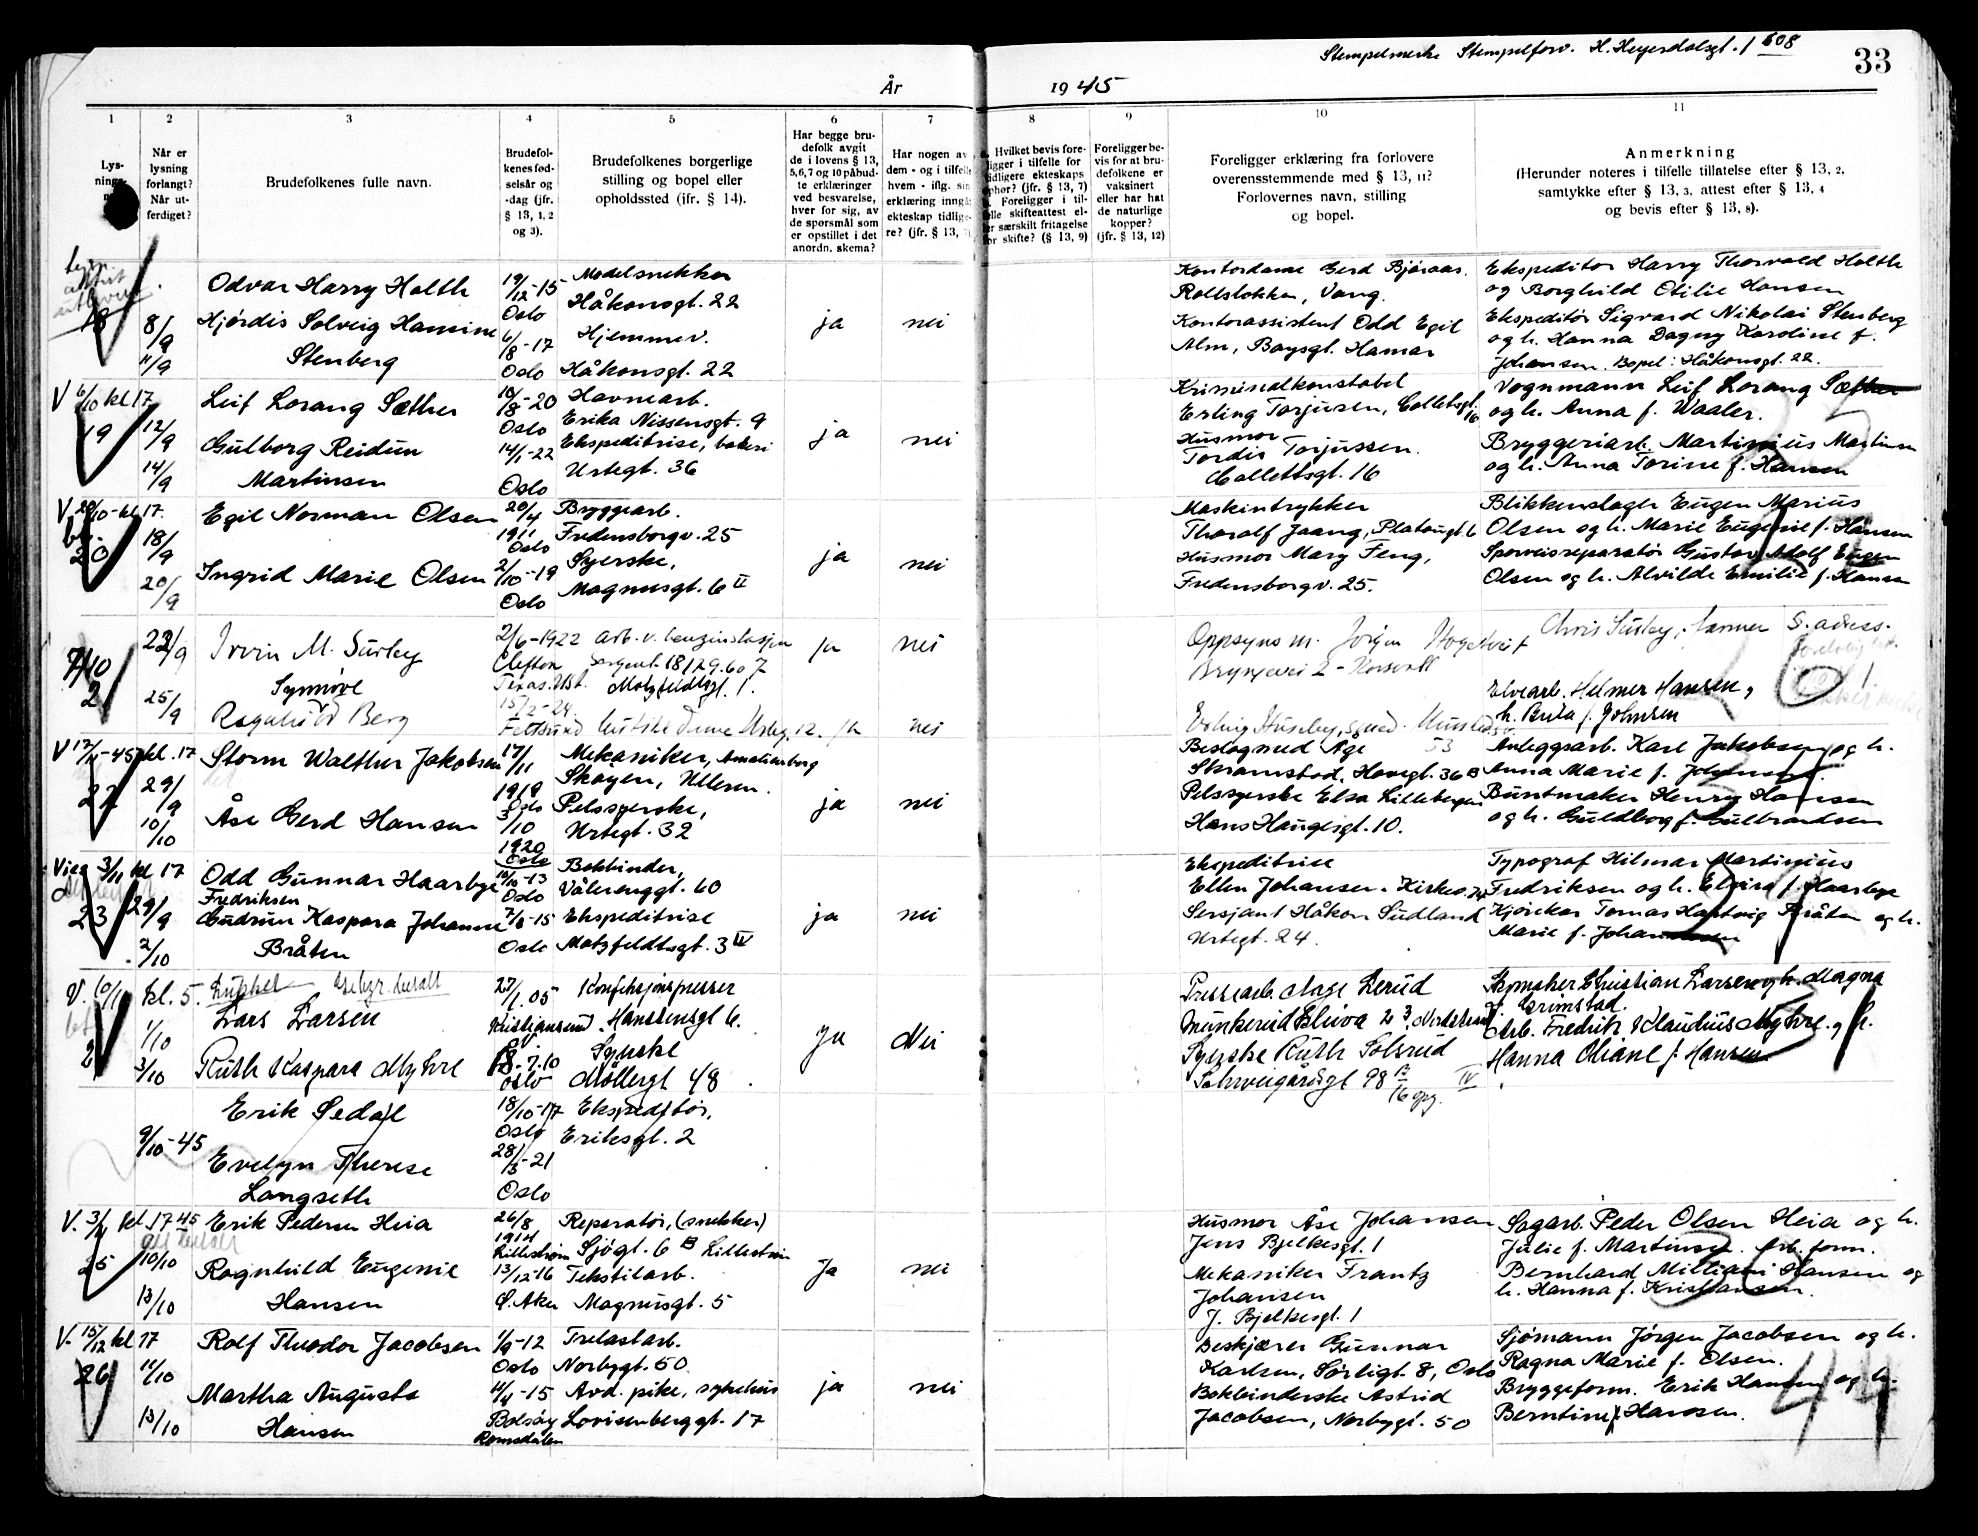 Stempelmerke Stempelforv. H. Heyerdalsgt. 1 608
33
År 1945
1 2 3 4 5 6 7 8 9 10 11
Når er lysning forlangt? Når ut-ferdiget?
Brudefolkenes fulle navn.
Brudefol-kenes fød-selsår og -dag (jfr. § 13, 1, 2 og 3).
Brudefolkenes borgerlige stilling og bopel eller opholdssted (jfr. § 14).
Har begge bru-defolk avgit de i lovens § 13, 5,6,7 og 10 påbud-te erklæringer ved besvarelse, hver for sig, av de spørsmål som er opstillet i det anordn. skema?
Har nogen av dem - og i tilfelle hvem - iflg. sin erklæring inngå ekteskap tidlige-re? (jfr. § 13,
Hvilket bevis fore-ligger i tilfelle for tidligere ekteskaps ophør? (jfr. § 13, 7) Foreligger i til-felle skifteattest el-ler særskilt fritagelse for skifte? (§ 13, 9)
Foreligger be-vis for at bru-defolkene er vaksinert eller har hat de naturlige kopper? (jfr. § 13, 12)
Foreligger erklæring fra forlovere overensstemmende med § 13, 11? Forlovernes navn, stilling og bopel.
Anmerkning (Herunder noteres i tilfelle tillatelse efter § 13, 2, samtykke efter § 13, 3, attest efter § 13, 4 og bevis efter § 13, 8).
18
8/9
11/9
Odvar Harry Holth
Hjördis Solveig Hansine
Stenberg
19/12-15
Oslo
6/8-17
Oslo
Modelsnekker
Håkonsgt. 22
Hjemmev.
Håkonsgt. 22
ja nei
Kontordame Gerd Björaas.
Rollstokken, Vang.
Kontorassistent Odd Egil
Alm, Baysgt. Hamar
Ekspeditör Harry Thorvald Holth
og Borghild Otilie Hansen
Ekspeditör Sigvard Nikolai Stenberg
og h. Hanna Dagny Karoline f.
Johansen. Bopel: Håkonsgt. 22.
V 6/10 kl 17
19
12/9
14/9
Leif Lorang Sæther
Gulborg Reidun
Martinsen
10/8-20
Oslo
14/1-22
Oslo
Havnearb.
Erika Nissensgt. 9
Ekspeditrise, bakeri
Urtegt. 36
ja nei
Kriminalkonstabel
Erling Torjusen, Collettsgt. 16
Husmor
Tordis Torjussen.
Collettsgt. 16
Vognmann Leif Lorang Sæther
og h. Anna f. Waaler.
Bryggeriarb. Martinius Martinsen
og h. Anna Torine f. Hansen
V 20/10 - kl 17.
20
18/9
20/9
Egil Norman Olsen
Ingrid Marie Olsen
20/4
1911
Oslo
2/10-19
Oslo
Bryggearb.
Fredensborgv. 25
Syerske,
Magnusgt. 6 II
ja nei
Maskintrykker
Thoralf Jaang, Platougt. 6
Husmor Mary Feng,
Fredensborgv. 25.
Blikkenslager Eugen Marius
Olsen og h. Marie Eugenie f. Hansen
Sporveisreparatör Gustav Adolf Eugen
Olsen og h. Alvilde Emilie f. Hansen
7/10
2
22/9
25/9
Irvin M. Surley
Synnöve
Ragnhild Berg
2/6-1922
Clifton
Texas. USA.
15/2-24.
Fetsund
arb. v. benzinstasjon
Sergeant 18129607
Motzfeldtsgt. 1.
ja nei
ja nei
Oppsynsm. Jörgen
Brynjevei 2 - Korsvoll
Chris Surley, farmer
Elvearb. Helmer Hansen,
h. Berta f. Johnsen
V 17/11-45 kl. 17
22
29/9
10/10
Storm Walther Jakobsen
Åse Gerd Hansen
17/11
1919
Oslo
3/10
1920
Oslo
Mekaniker, Amalienborg
Skøyen, Ullern.
Pelssyerske,
Urtegt. 32
ja nei
Beslagsmed Åge
Skramstad, Havegt. 36 B
Pelssyerske Elsa Lillebergen
Hans Haugesgt. 10.
Anleggsarb. Karl Jakobsen og h.
Anna Marie f. Johansen.
Buntmaker Henry Hansen
og h. Guldborg f. Gulbrandsen
Vies 3/11 kl 17
23
29/9
2/10
Odd Gunnar Haarbye
Fredriksen
Gudrun Kaspara Johanne
Bråten
10/10-13
Oslo
7/8-15
Oslo
Bokbinder,
Vålerenggt. 60
Ekspeditrise
Motzfeldtsgt. 3 IV
ja nei
Ekspeditrise
Ellen Johansen, Kirkev. 74
Sersjant Håkon Sudland
Urtegt. 24.
Typograf Hilmar Martinius
Fredriksen og h. Elvira f. Haarbye
Kjörekar Tomas Hartvig Bråten og h.
Marie f. Johannessen
V. 10/11 kl. 5.
1/10
3/10
Lars Larsen
Ruth Kaspara Myhre
27/1.05
Kristiansund
18.7.10
Oslo
Konfeksjonspresser
Hanstensgt 6.
Syerske
Möllergt 48
Ja Nei
Pressearb. Aage Lerud
Munkerud
Syerske Ruth Solsrud
Schweigårdsgt 98 IV
Skomaker Christian Larsen og h. Magna
f. Grimstad.
Arb. Fredrik Klaudius Myhre og h.
Hanna Oliane f. Hansen.
9/10-45
Erik Sedal
Evelyn Therese
Langseth
18/10-17
Oslo
28/3-21
Oslo
Ekspeditör,
Eriksgt. 2
V. 3/11 kl 17 45
25
10/10
13/10
Erik Pedersen Heia
Ragnhild Eugenie
Hansen
26/8
1914
Lilleström
13/12-16
Ö. Aker
Reparatör, (snekker)
Sjögt. 6 B Lilleström
Tekstilarb.
Magnusgt. 5
Ja nei
Husmor Åse Johansen
Jens Bjelkesgt. 1
Mekaniker Frantz
Johansen
J. Bjelkesgt. 1
Sagarb. Peder Olsen Heia og h.
Julie f. Martinsen. Arb. form.
Bernhard Milliam Hansen og
h. Hanna f. Kristiansen.
34
V. 15/12 kl 17
26
11/10
13/10
Rolf Theodor Jacobsen
Martha Augusta
Hansen
1/9-12
Oslo
4/4-15
Bolsöy
Romsdalen
Trelastarb.
Norbygt. 50
Avd. pike, sykehus
Lovisenberggt. 17
ja nei
Beskjærer Gunnar
Karlsen, Sörligt. 8, Oslo
Bokbinderske Astrid
Jacobsen, Norbygt. 50
Sjömann Jörgen Jacobsen og h.
Ragna Marie f. Olsen.
Bryggeform. Erik Hansen og h.
Berntine f. Hansen.
44